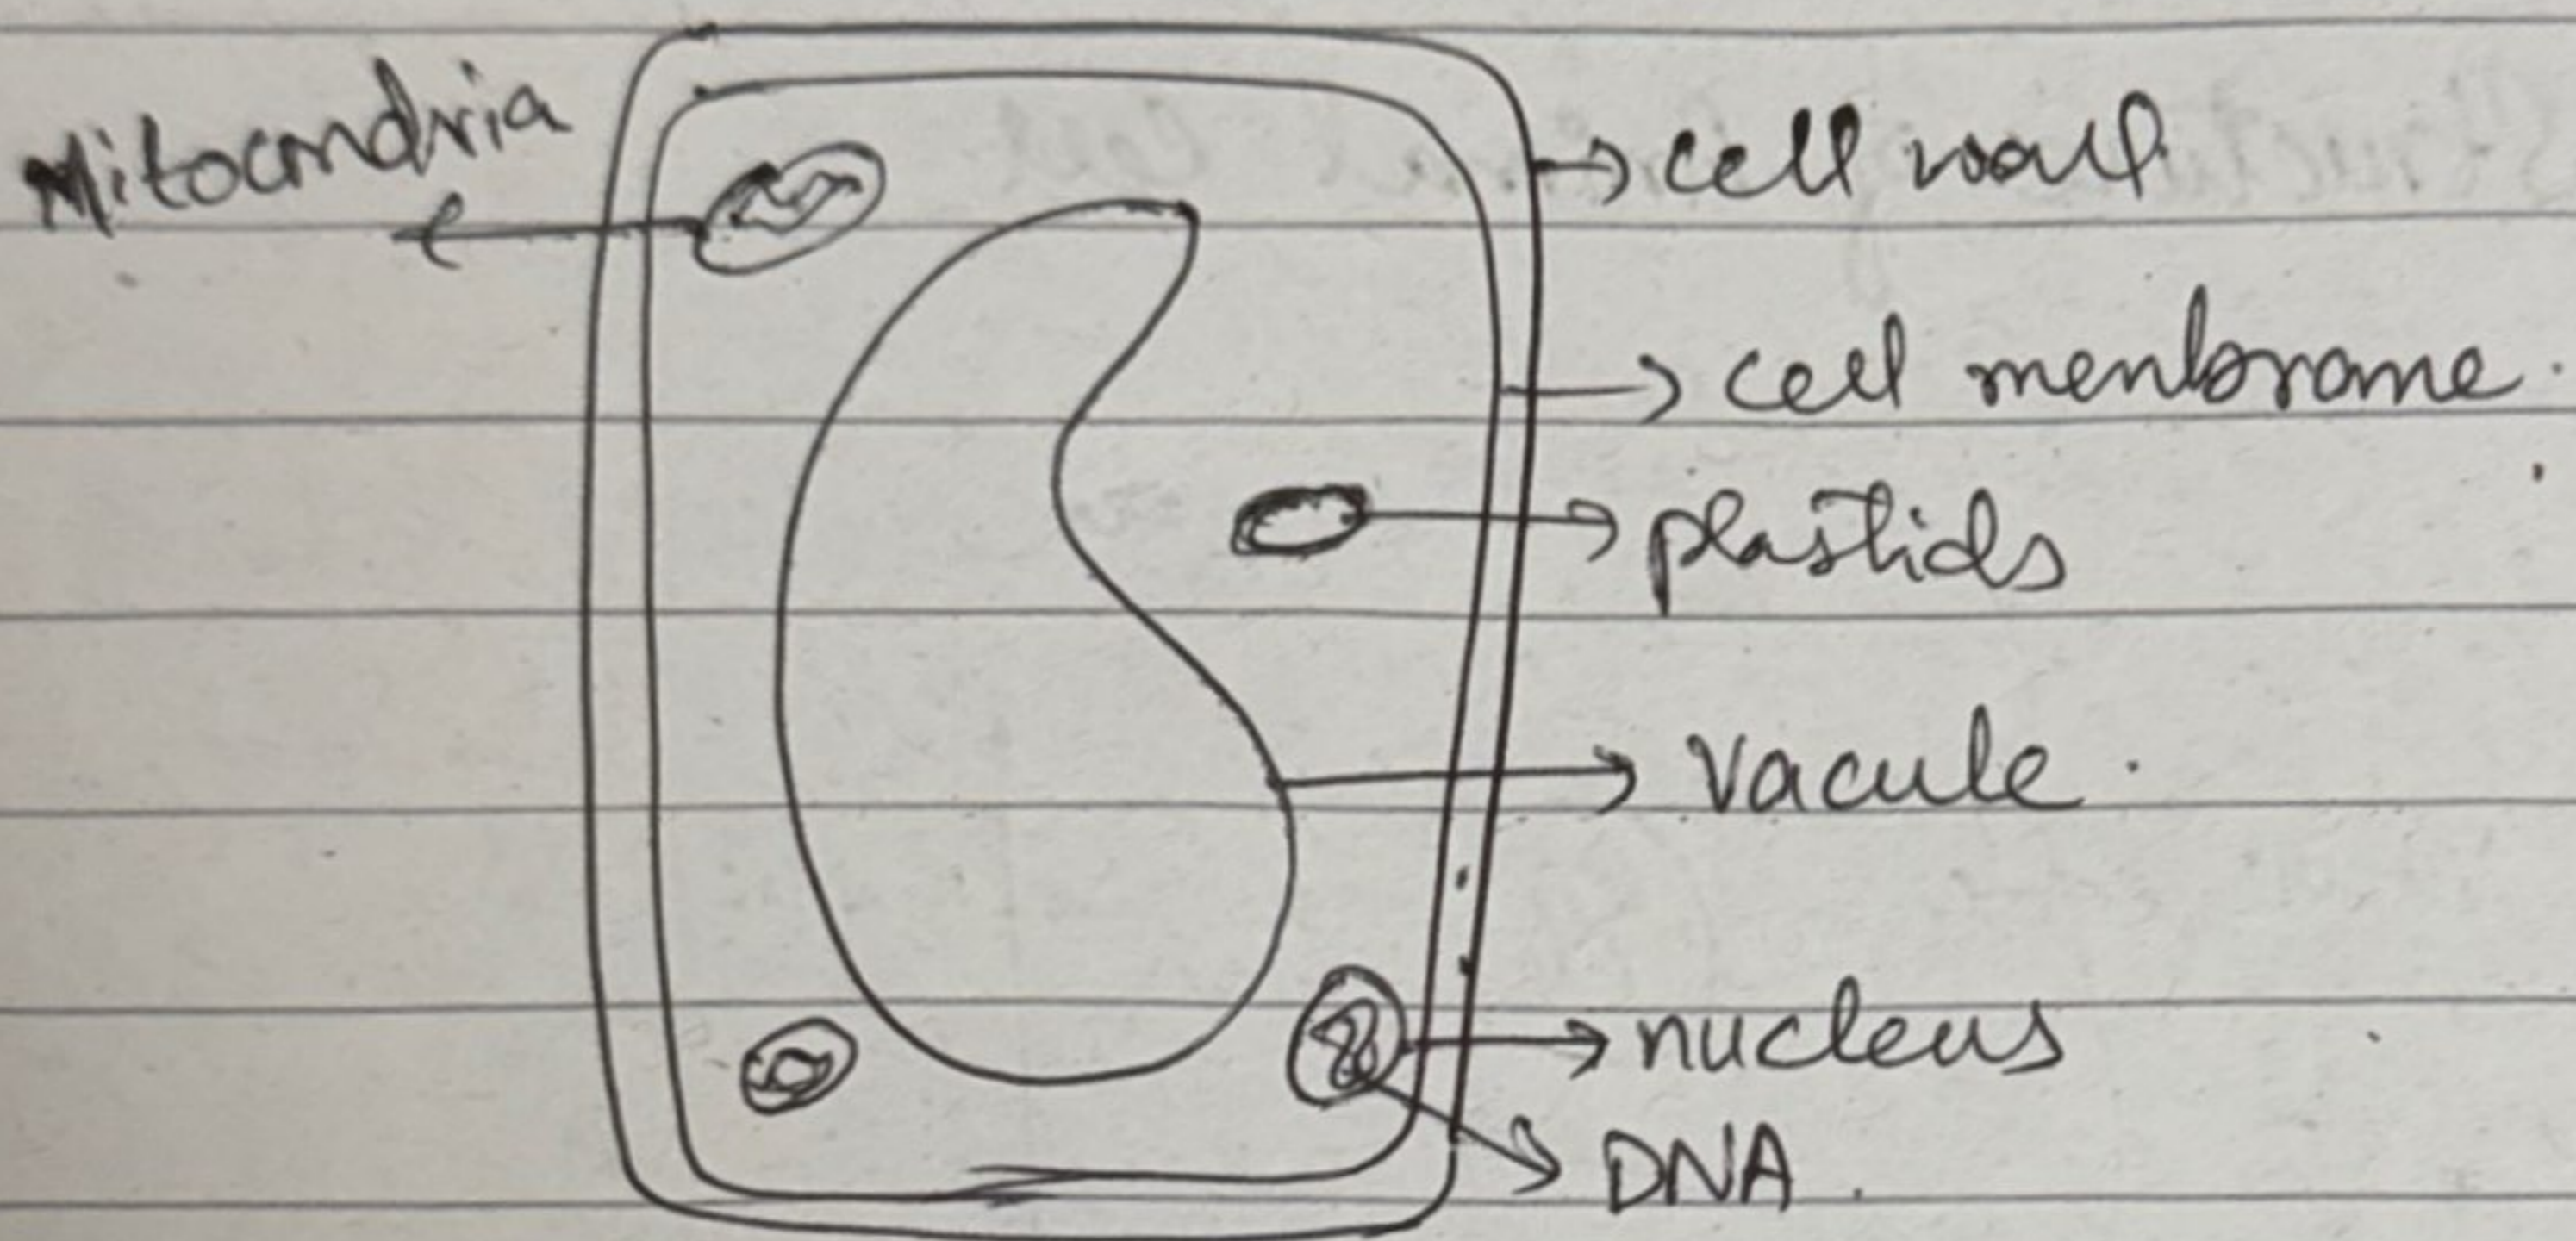 Mitocondria
cell wall
cell menbrane.
plastids
Vacule.
nucleus
DNA.